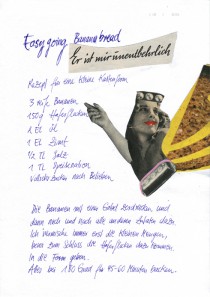 Easy going Banana bread
Er ist mir unentbehrlich
Rezept für eine kleine Kastenform
3 reife Bananen
150g Haferflocken
1 EL Öl
1 EL Zimt
½ TL Salz
1 TL
nach Belieben
Die Bananen mit einer Gabel zerdrücken und
dann nach und nach alle anderen Zutaten dazu.
Ich immer erst die kleinen Mengen,
bevor zum Schluss die Haferflocken dazu kommen.
In die Form geben.
Alles bei 180 Grad für 45-60 Minuten backen.